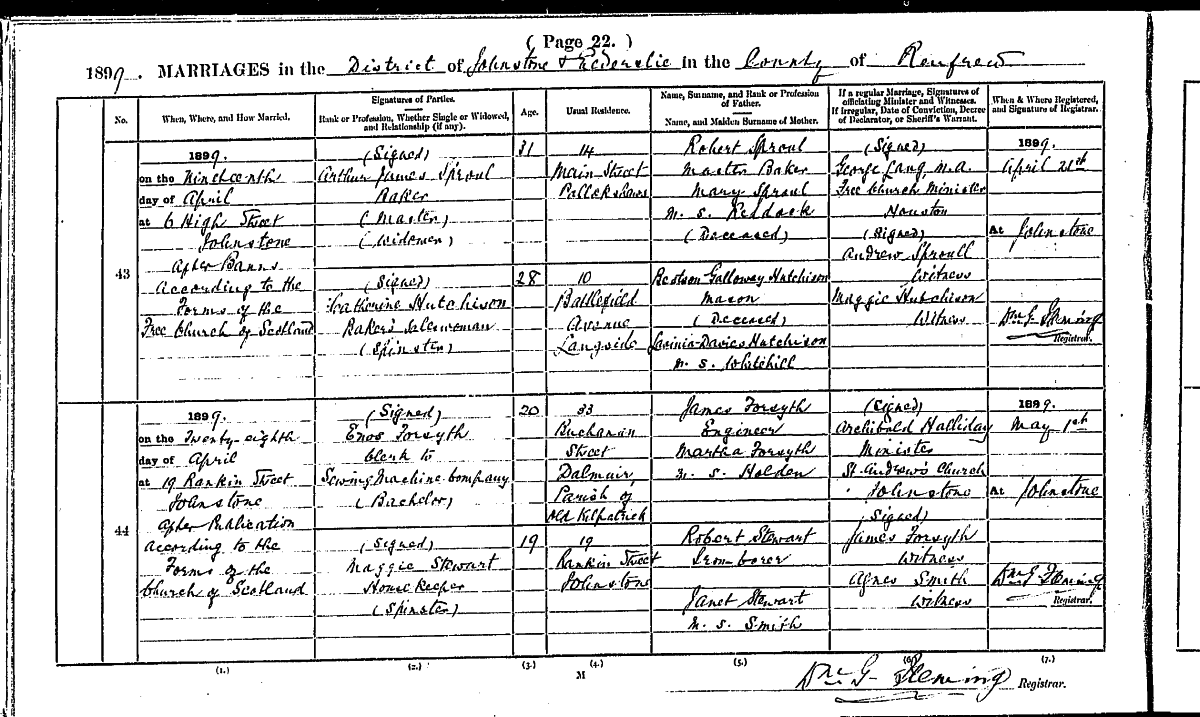 ( Page 22. )
1899. MARRIAGES in the District of Johnstone & Elderslie in the County of Renfrew
No.
When, Where, and How Married.
Signatures of Parties.
Rank or Profession, Whether Single or Widowed, and Relationship (if any).
Age.
Usual Residence.
Name, Surname, and Rank or Profession of Father.
Name, and Maiden Surname of Mother.
If a regular Marriage, Signatures of officiating Minister and Witnesses.
If Irregular, Date of Conviction, Decree of Declarator, or Sheriff's Warrant.
When & Where Registered, and Signature of Registrar.
43
1899.
on the Nineteenth
day of April
at 6 High Street
Johnstone
After Banns
According to the
Forms of the
Free Church of Scotland
(Signed)
Arthur James Sproul
Baker
(Master)
(Widower)
(Signed)
Catherine Hutchison
Baker's Saleswoman
(Spinster)
31
28
14
Main Street
Pollokshaws
10
Battlefield
Avenue
Langside
Robert Sproul
Master Baker
Mary Sproul
m. s. Reddock
(Deceased)
Galloway Hutchison
Mason
(Deceased)
Lavinia Davies Hutchison
m. s. Whitehill
(Signed)
George Lang, M.A.
Free Church Minister
Houston
(Signed)
Andrew Sproull
Witness
Maggie Hutchison
Witness
1899.
April 21st
At Johnstone
Wm. G. Fleming
Registrar.
44
1899.
on the Twenty-eighth
day of April
at 19 Rankin Street
Johnstone
After Publication
According to the
Forms of the
Church of Scotland
(Signed)
Enos Forsyth
Clerk to
Sewing Machine Company
(Bachelor)
(Signed)
Maggie Stewart
Housekeeper
(Spinster)
20
19
33
Buchanan
Street
Dalmuir,
Parish of
Old Kilpatrick
19
Rankin Street
Johnstone
James Forsyth
Engineer
Martha Forsyth
m. s. Holden
Robert Stewart
Iron borer
Janet Stewart
m. s. Smith
(Signed)
Archibald Halliday
Minister
St. Andrew's Church
Johnstone
(Signed)
James Forsyth
Witness
Agnes Smith
Witness
1899.
May 1st
At Johnstone
Wm. G. Fleming
Registrar.
(1.) (2.) (3.) (4.) (5.) (6.) (7.)
M
Wm. G. Fleming Registrar.